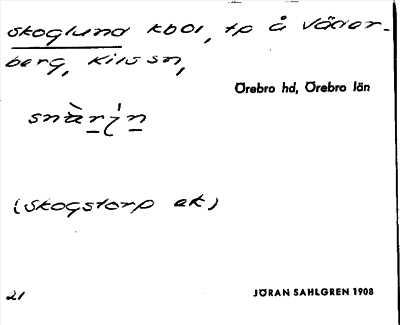 Skoglund kbol, tp å Väder-
berg, Kilssn,
Örebro hd, Örebro län
snàrín
(Skogstorp ek)
21
JÖRAN SAHLGREN 1908